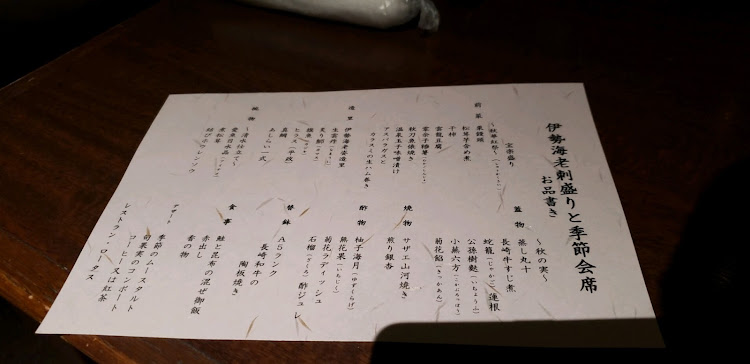 伊勢海老刺盛りと季節会席
お品書き
前菜
宝楽盛り
栗饅頭
松茸芋含め煮
干柿
雲龍豆腐
秋刀魚俵焼き
温泉玉子味噌漬け
アスパラガスと
カラスミの生ハム巻き
造里
伊勢海老姿造里
生雲丹
炙り鮑
ヒラス(平政)
真鯛
あしらい一式
椀物
～清水仕立て～
煮松茸
結びホウレンソウ
蓋物
～秋の実～
蒸し丸十
長崎牛すじ煮
蛇籠(じゃかご)蓮根
公孫樹麩(いちょうふ)
小蕪六方(こかぶろっぽう)
菊花餡(きっかあん)
焼物
サザエ山河焼き
煎り銀杏
酢物
柚子海月(ゆずくらげ)
無花果(いちじく)
菊花ラディッシュ
石榴(ざくろ)酢ジュレ
替鉢
A5ランク
長崎和牛の
陶板焼き
食事
鮭と昆布の混ぜ御飯
赤出し
香の物
デザート
季節のムースタルト
旬果実のコンポート
コーヒー又は紅茶
レストラン・ロータス